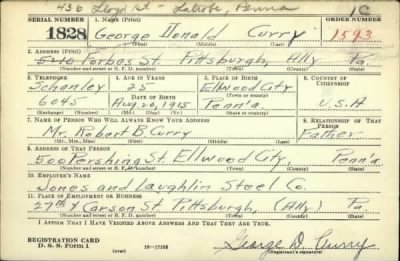 436 Lloyd St - Latrobe, Penna
1C
SERIAL NUMBER 1. NAME (Print) ORDER NUMBER
1828 George Donald Curry 1593
(First) (Middle) (Last)
2. ADDRESS (Print)
5210 Forbes St. Pittsburgh, Ally Pa.
(Number and street or R. F. D. number) (Town) (County) (State)
3. TELEPHONE 4. AGE IN YEARS 5. PLACE OF BIRTH 6. COUNTRY OF CITIZENSHIP
Schenley 25 Ellwood City
DATE OF BIRTH
6045 Aug. 20, 1915 Penn'a. U.S.A
(Exchange) (Number) (Mo.) (Day) (Yr.) (State or country)
7. NAME OF PERSON WHO WILL ALWAYS KNOW YOUR ADDRESS 8. RELATIONSHIP OF THAT PERSON
Mr. Robert B Curry Father
(Mr., Mrs., Miss) (First) (Middle) (Last)
9. ADDRESS OF THAT PERSON
500 Pershing St. Ellwood City, Penn'a
(Number and street or R. F. D. number) (Town) (County) (State)
10. EMPLOYER'S NAME
Jones and Laughlin Steel Co.
11. PLACE OF EMPLOYMENT OR BUSINESS
27th & Carson St. Pittsburgh, (Ally) Pa.
(Number and street or R. F. D. number) (Town) (County) (State)
I AFFIRM THAT I HAVE VERIFIED ABOVE ANSWERS AND THAT THEY ARE TRUE.
REGISTRATION CARD
D. S. S. Form 1 (over) 16-17105 George D. Curry
(Registrant's signature)